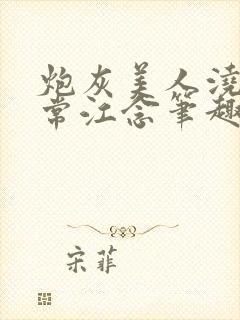 炮灰美人浇
常江念笔趣
宋菲